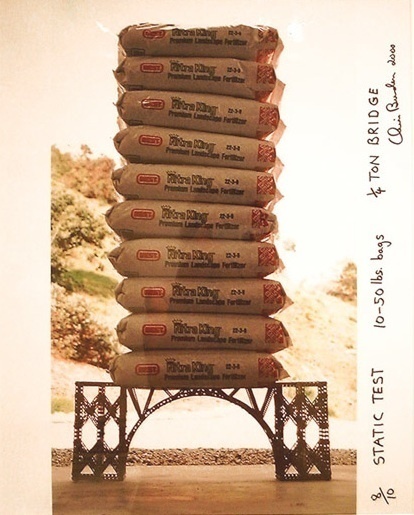 BEST Nitra King 22-3-9
Premium Landscape Fertilizer
BEST Nitra King 22-3-9
Premium Landscape Fertilizer
BEST Nitra King 22-3-9
Premium Landscape Fertilizer
BEST Nitra King 22-3-9
Premium Landscape Fertilizer
BEST Nitra King 22-3-9
Premium Landscape Fertilizer
BEST Nitra King 22-3-9
Premium Landscape Fertilizer
BEST Nitra King 22-3-9
Premium Landscape Fertilizer
BEST Nitra King 22-3-9
Premium Landscape Fertilizer
BEST Nitra King 22-3-9
Premium Landscape Fertilizer
BEST Nitra King 22-3-9
Premium Landscape Fertilizer
8/10 STATIC TEST 10-50 lbs. bags 1/4 TON BRIDGE
Chris Burden 2000